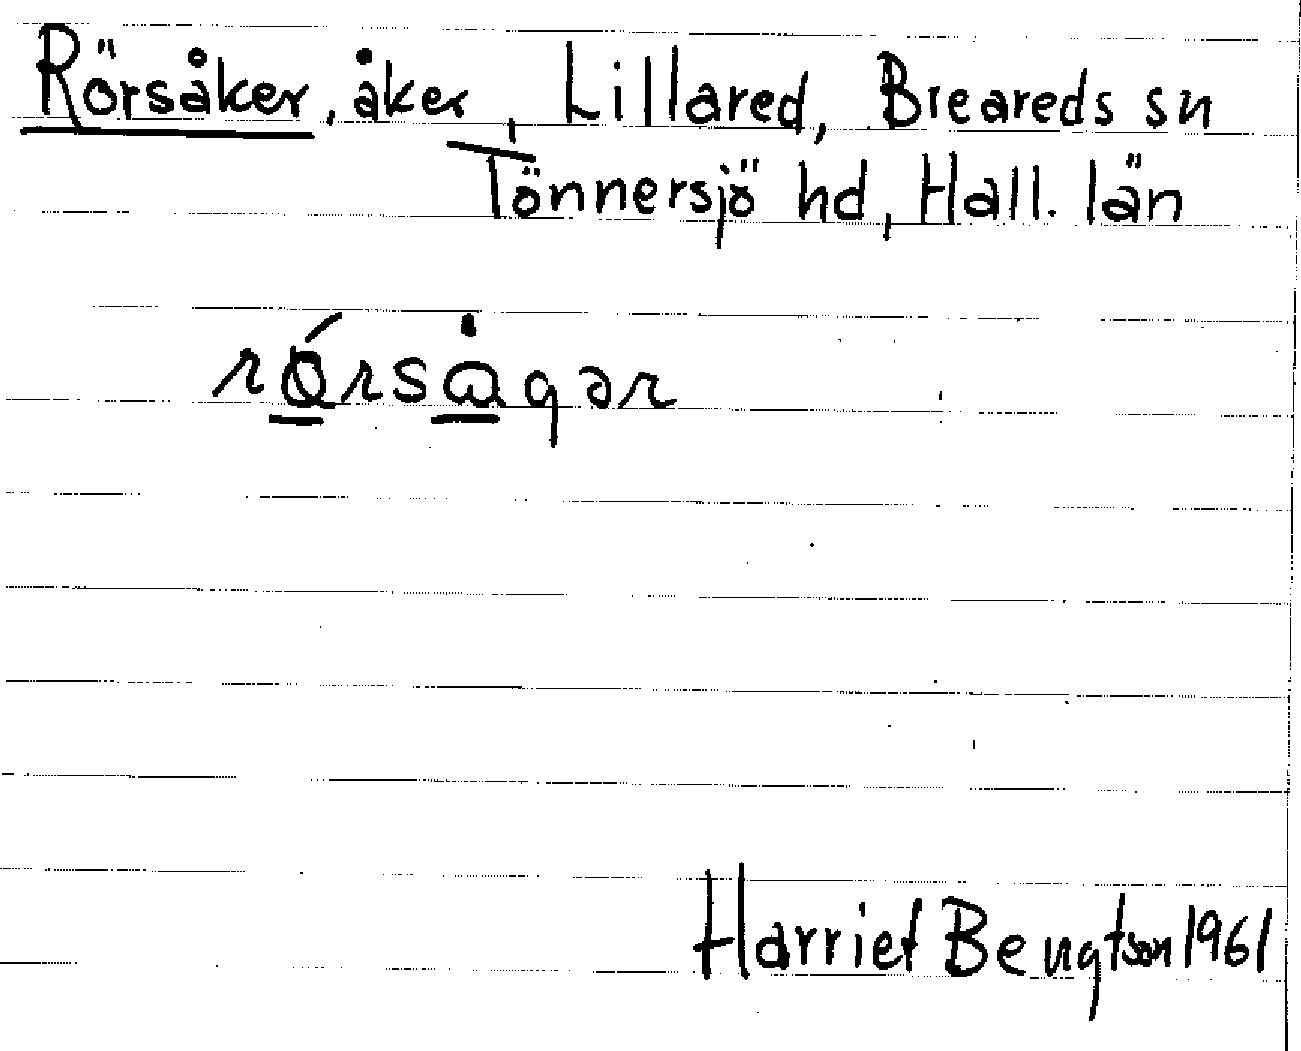 Rörsåker, åker, Lillared, Breareds sn
Tönnersjö hd, Hall. län
rǿrsågər
Harriet Bengtson 1961